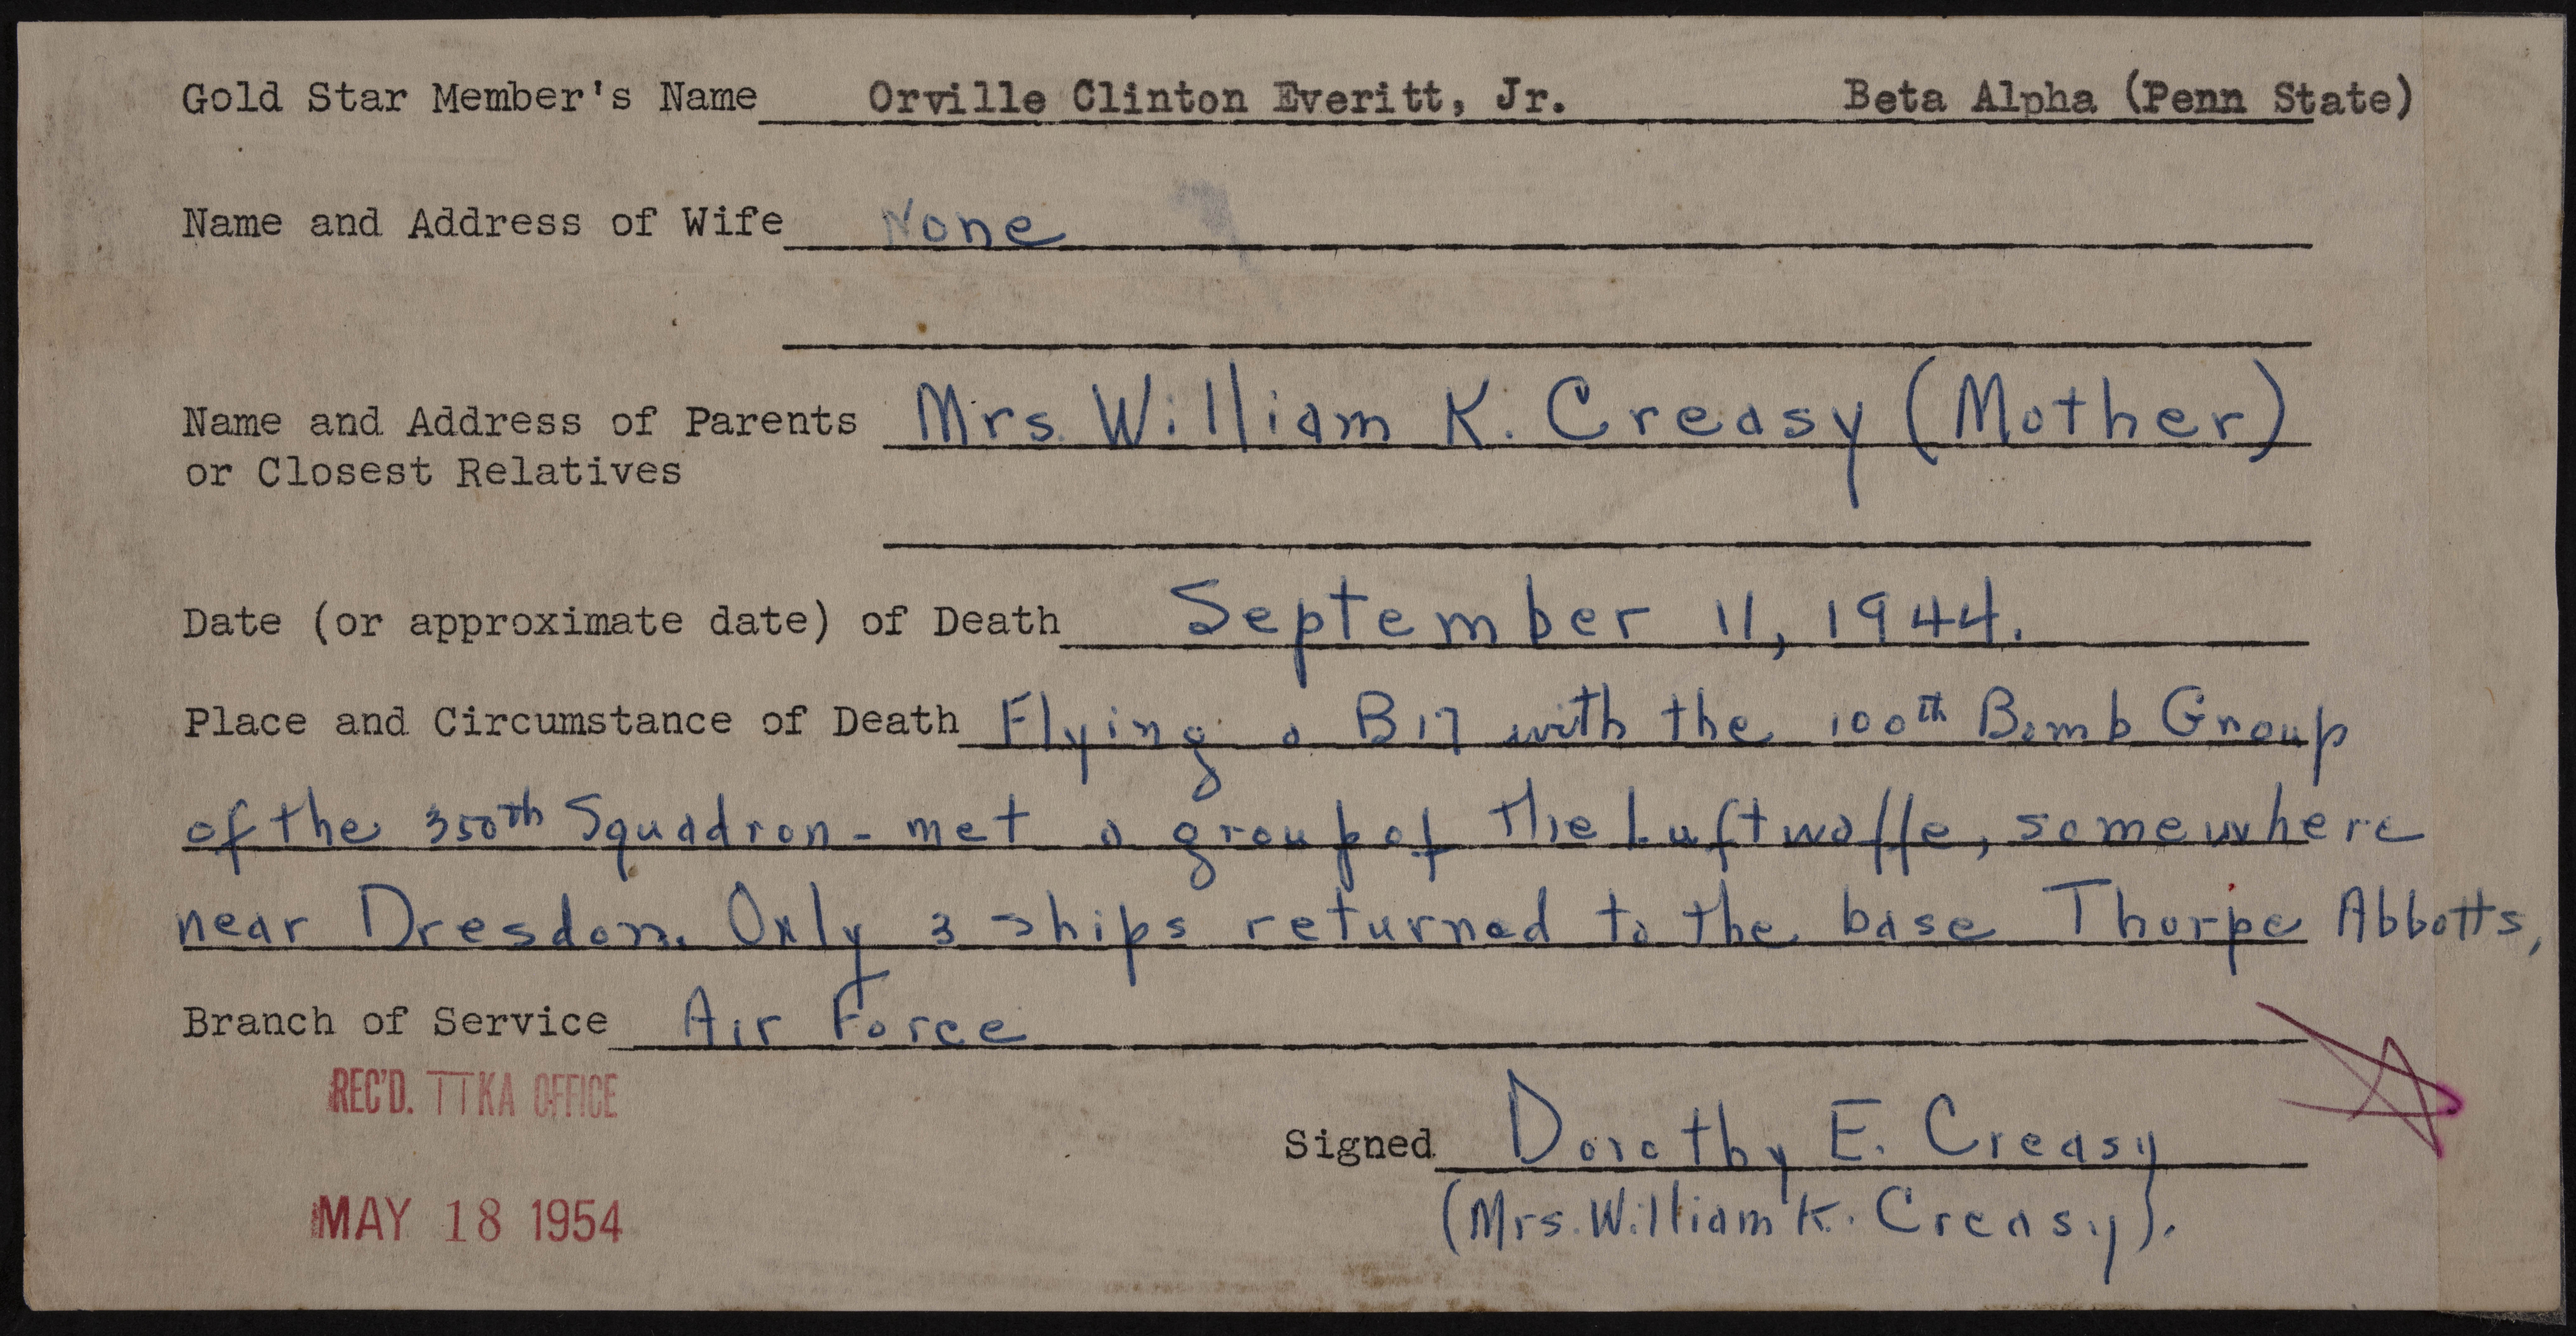 Gold Star Member's Name Orville Clinton Everitt, Jr. Beta Alpha (Penn State)
Name and Address of Wife None
Name and Address of Parents Mrs. William K. Creasy (Mother)
or Closest Relatives
Date (or approximate date) of Death September 11, 1944.
Place and Circumstance of Death Flying a B17 with the 100th Bomb Group
of the 350th Squadron - met a group of the Luftwaffe, somewhere
near Dresden. Only 3 ships returned to the base Thorpe Abbotts,
Branch of Service Air Force
REC'D. TTKA OFFICE
Signed Dorothy E. Creasy
(Mrs. William K. Creasy).
MAY 18 1954